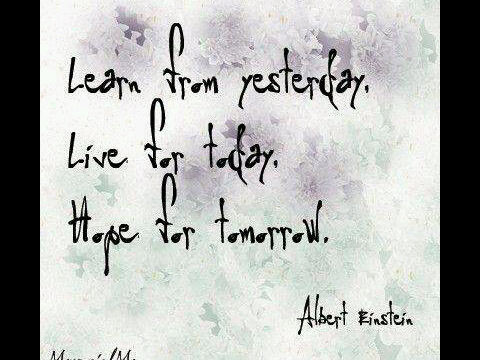 Learn from yesterday,
Live for today,
Hope for tomorrow.
Albert Einstein